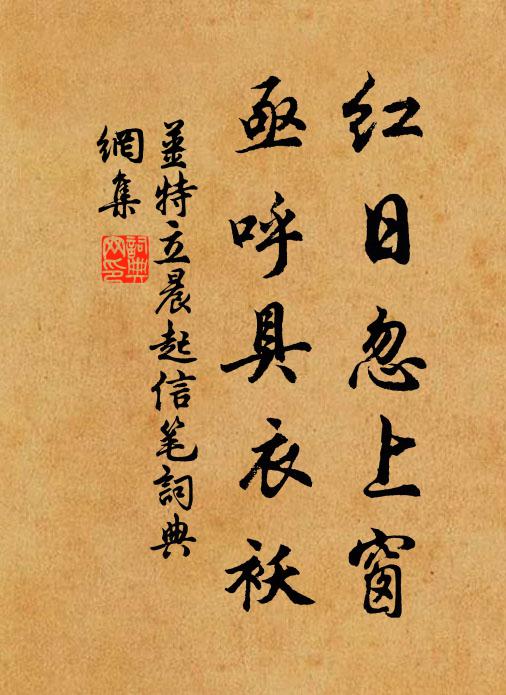 红日忽上窗
亟呼具衣袄
姜特立晨起信笔詞典
網集
詞典
网印